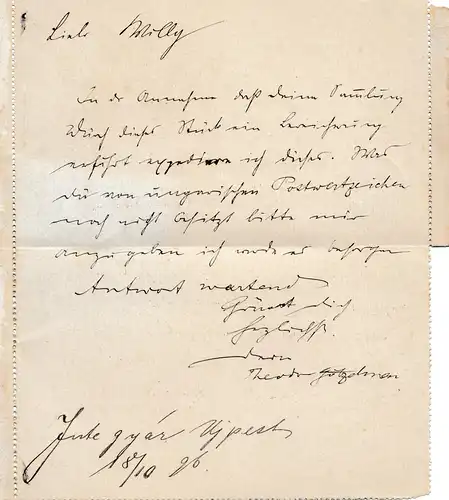 Liebr Willy
In der Annahme daß deine Sammlung
durch dieses Stück ein Bereicherung
erfährt expediere ich dieses. Was
du von ungarischen Postwertzeichen
noch nicht besitzt bitte mir
anzugeben ich werde es besorgen
Antwort wartend
Grüsst dich
herzlichst
dein
Theodor
Jutegyár Ujpest
18/10 96.